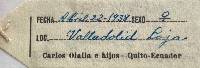 FECHA Abril, 22-1938 SEXO ♀
LOC. Valladolid Loja
Carlos Olalla e hijos - Quito-Ecuador